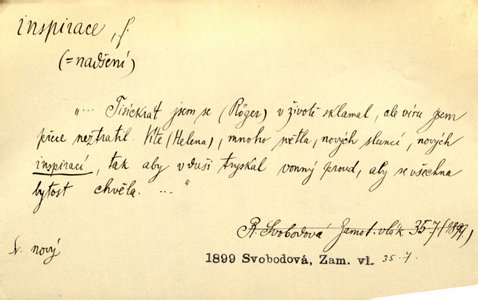 inspirace, f.
(= nadšení)
"... Tisíckrát jsem se (Röger) v životě sklamal, ale víru jsem
přece neztratil. Víte (Helena), mnoho světla, nových sluncí, nových
inspirací, tak aby v duši tryskal vonný proud, aby se všechna
bytost chvěla. ..."
R Svobodová Zamot. vlák. 35.7 (1899)
1899 Svobodová, Zam. vl. 35.7.
nový